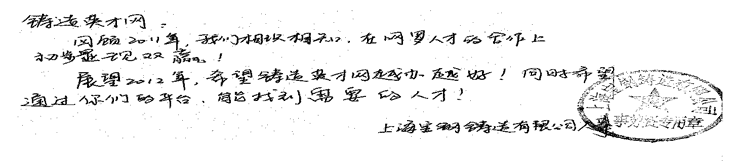 铸造英才网：
回顾2011年，我们相识相知，在网罗人才的合作上
初步显现双赢！
展望2012年，希望铸造英才网越办越好！同时希望
通过你们的平台，能找到需要的人才！
上海宝钢铸造有限公司人事
专用章